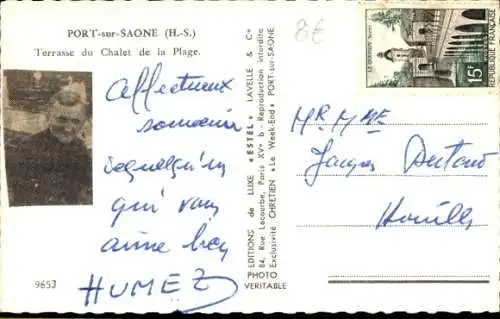 PORT-sur-SAONE (H.-S.)
Terrasse du Chalet de la Plage.
Affectueux
souvenir
de quelqu'un
qui vous
aime bien
HUMEZ
9653
EDITIONS de LUXE « ESTEL » LAVELLE & Cie
84, Rue Lecourbe, Paris XVe b - Reproduction interdite
Exclusivité CHRETIEN « Le Week-End » PORT-sur-SAONE
PHOTO
VERITABLE
8€
LE QUESNOY
15F
REPUBLIQUE FRANÇAISE
MR MME
Jacques
Houilles